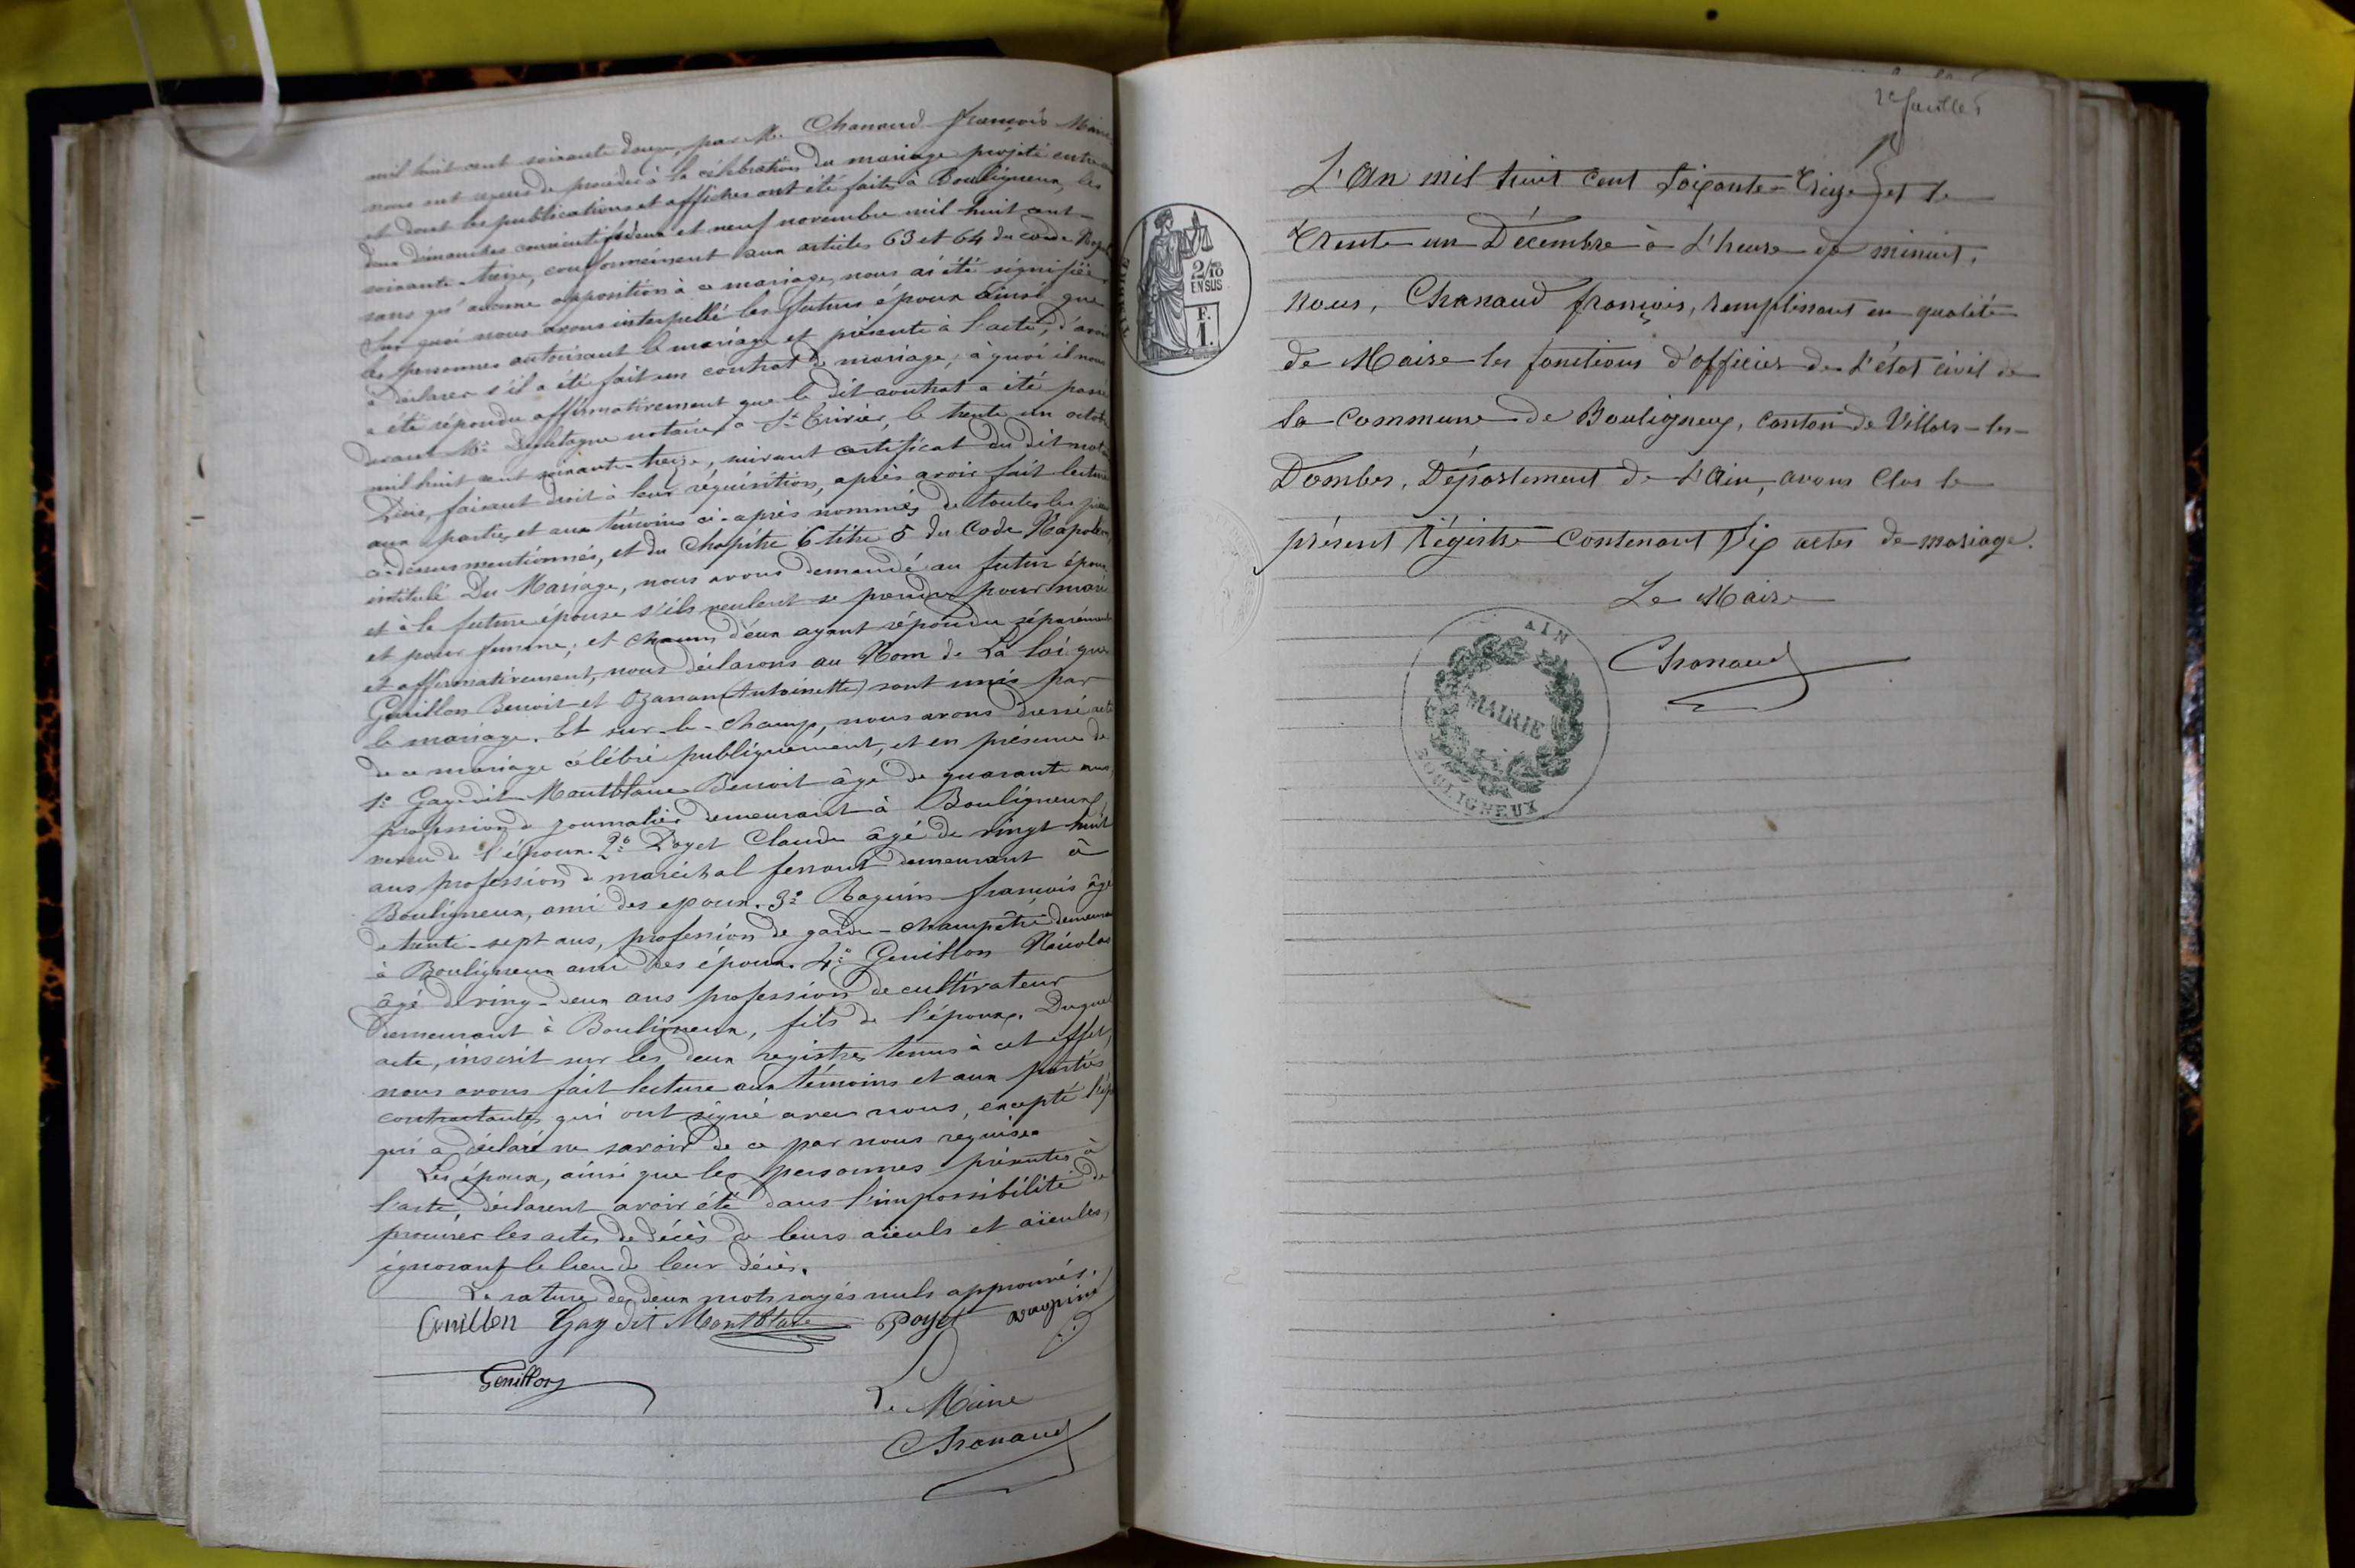 mil huit cent soixante douze, par Mr. Chanaud françois Maire
nous ont requis de procéder à la célébration du mariage projeté entre
et dont les publications et affiches ont été faites à Bouligneux, les
deux dimanches consécutifs deux et neuf novembre mil huit cent
soixante-treize, conformément aux articles 63 et 64 du code
sans qu'aucune opposition à ce mariage, nous ai été signifiée
Sur quoi nous avons interpellé les futurs époux ainsi que
les personnes autorisant le mariage et présente à l'acte, d'avoir
à déclarer s'il a été fait un contrat de mariage; à quoi il nous
a été répondu affirmativement que le dit contrat a été passé
devant Me notaire à St Trivier, le trente un
mil huit cent soixante-treize, suivant certificat du dit
faisant droit à leur réquisition, après avoir fait lecture
aux parties et aux témoins ci-après nommés de toutes les
ci-dessus mentionnés, et du Chapitre 6 titre 5 du Code Napoléon,
intitulé Du Mariage, nous avons demandé au futur époux
et à la future épouse s'ils veulent se prendre pour mari
et pour femme; et chacun d'eux ayant répondu séparément
et affirmativement, nous déclarons au Nom de La loi que
Genillon Benoit et Ozanan (Antoinette) sont unis par
le mariage. Et sur-le-champ, nous avons dressé acte
de ce mariage célébré publiquement, et en présence de
1° Gay dit Montblanc Benoit âgé de quarante ans,
profession de journalier demeurant à Bouligneux,
neveu de l'époux. 2° Poyet Claude âgé de vingt huit
ans profession de maréchal ferrant demeurant à
Bouligneux, ami des epoux. 3° Raguin françois âgé
de trente-sept ans, profession de garde-champêtre
à Bouligneux ami des époux. 4° Genillon Nicolas
âgé de ving-deux ans profession de cultivateur
demeurant à Bouligneux, fils de l'époux. Duquel
acte, inscrit sur les deux registres tenus à cet effet,
nous avons fait lecture aux témoins et aux parties
contractantes qui ont signé avec nous, excepté
qui a déclaré ne savoir de ce par nous requise
Les époux, ainsi que les personnes présentes à
l'acte, déclarent avoir été dans l'impossibilité de
procurer les actes de décès de leurs aïeuls et aïeules,
ignorant le lieu de leur décès.
La rature de deux mots rayés nuls approuvés.
Genillon Gay dit Montblanc Poyet Raguin
Genillon
Le Maire
Chanaud
2e feuillet
L'An mil huit cent soixante-treize et le
trente un Décembre à l'heure de minuit,
nous, Chanaud françois, remplissant en qualité
de Maire les fonctions d'officier de l'état civil de
la commune de Bouligneux, canton de Villars-les-
Dombes, Département de l'Ain, avons clos le
présent régistre contenant six actes de mariage.
Le Maire
Chanaud
2/10
EN SUS
F.
1.
AIN
MAIRIE
BOULIGNEUX